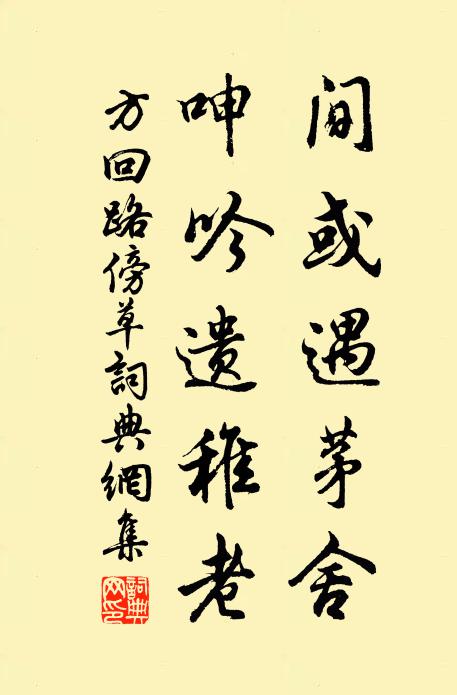 间或遇茅舍
呻吟遗稚老
方回路傍草詞典網集
詞典网印